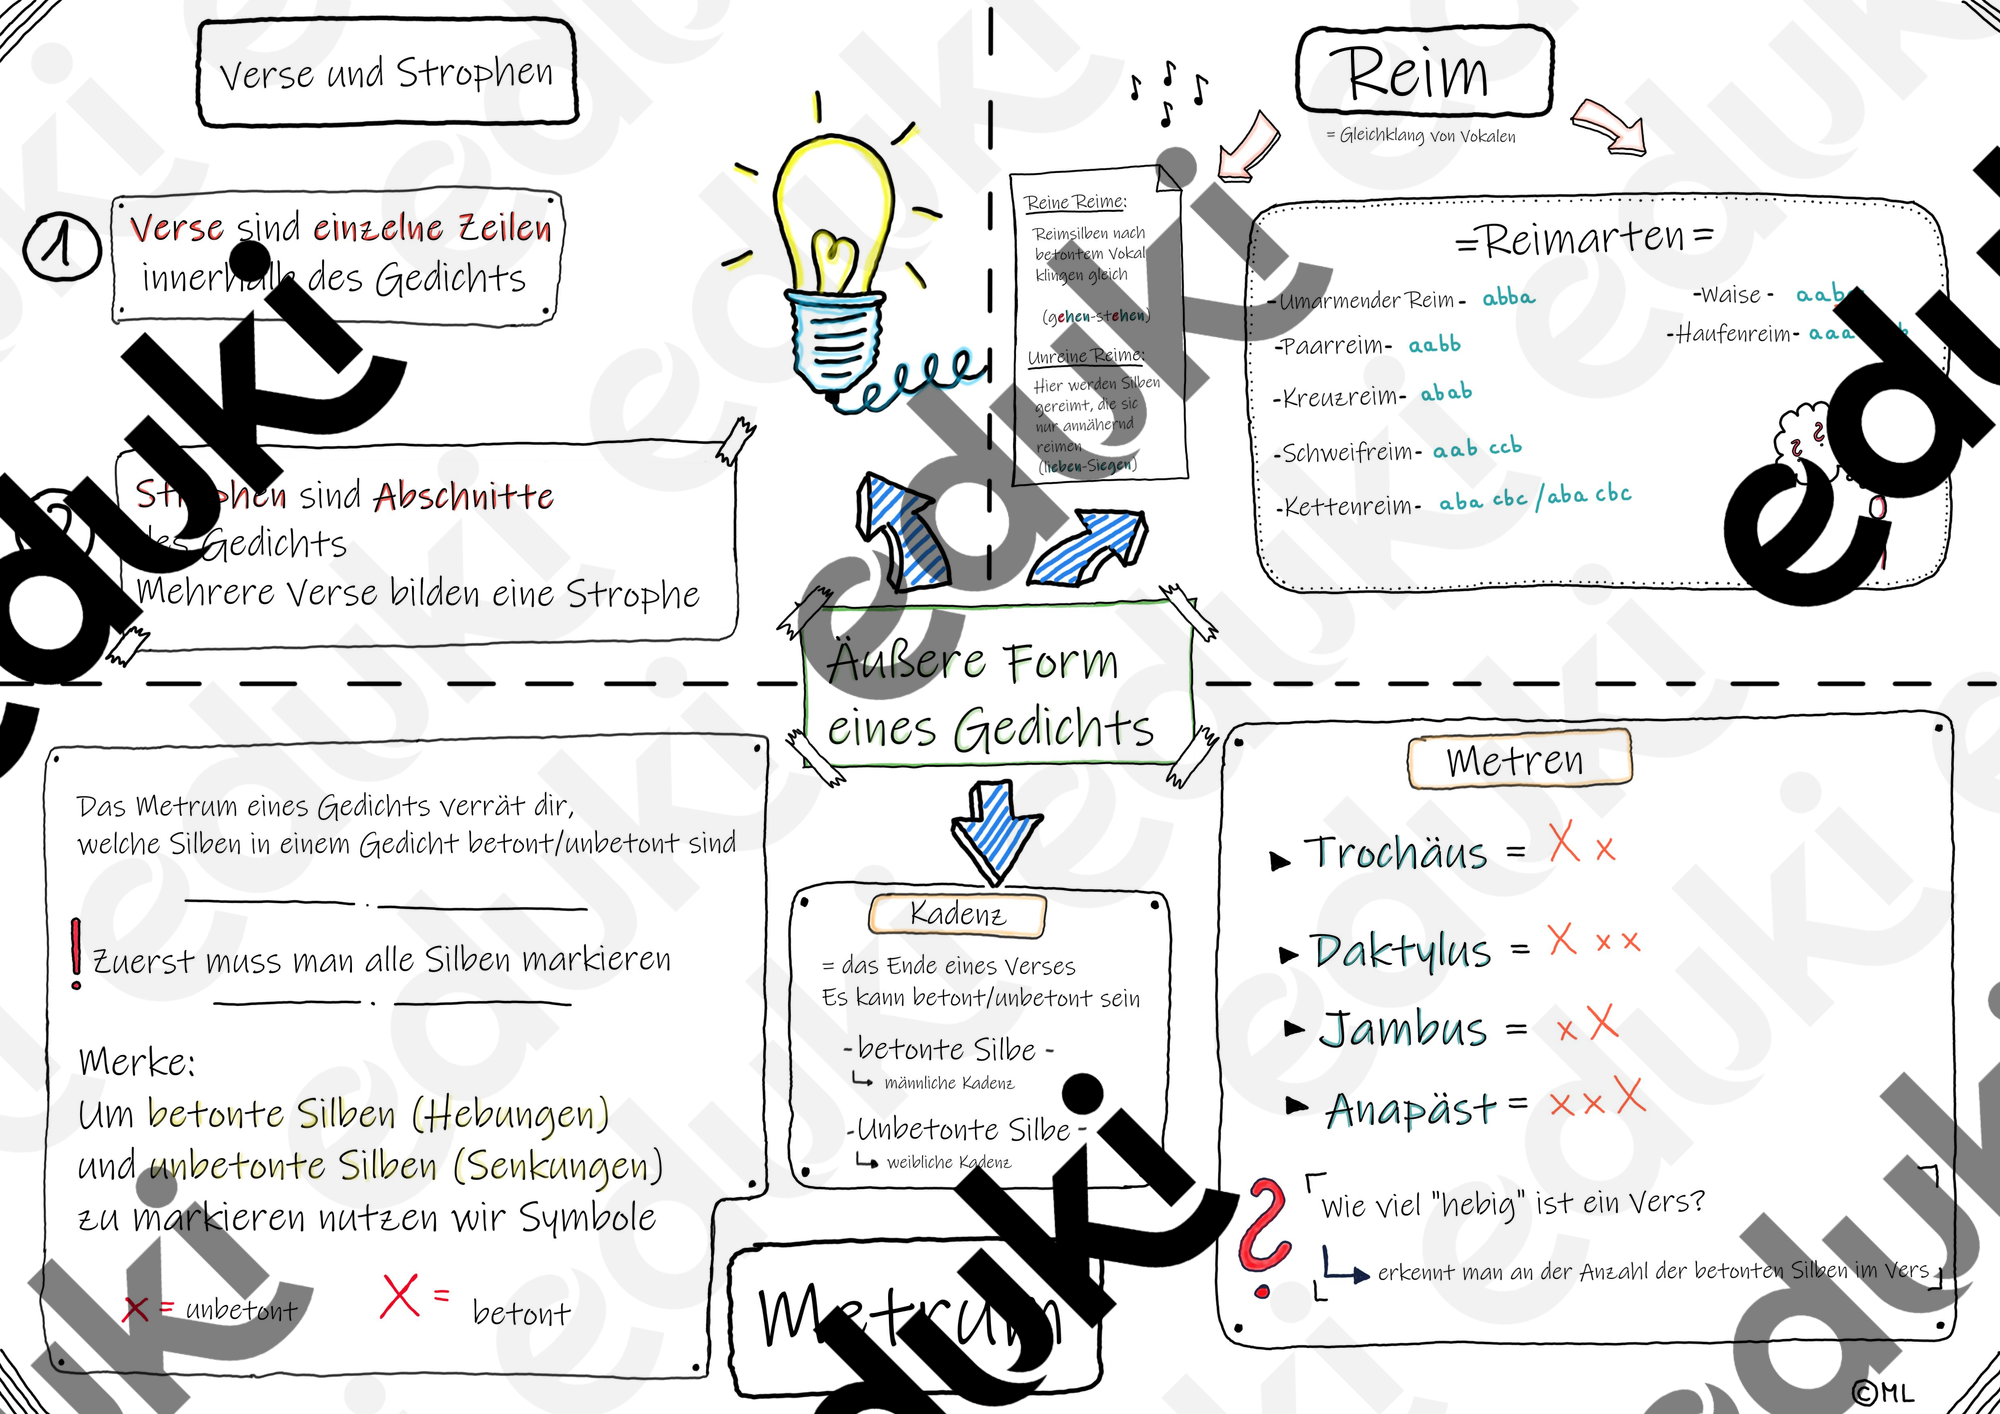 Verse und Strophen
1
Verse sind einzelne Zeilen
innerhalb des Gedichts
2
Strophen sind Abschnitte
des Gedichts
Mehrere Verse bilden eine Strophe
Reim
= Gleichklang von Vokalen
Reine Reime:
Reimsilben nach
betontem Vokal
klingen gleich
(gehen-stehen)
Unreine Reime:
Hier werden Silben
gereimt, die sic
nur annähernd
reimen
(lieben-Siegen)
=Reimarten=
-Umarmender Reim- abba
-Paarreim- aabb
-Kreuzreim- abab
-Schweifreim- aab ccb
-Kettenreim- aba cbc /aba cbc
-Waise- aab
-Haufenreim- aaa
Äußere Form
eines Gedichts
Das Metrum eines Gedichts verrät dir,
welche Silben in einem Gedicht betont/unbetont sind
! Zuerst muss man alle Silben markieren
Merke:
Um betonte Silben (Hebungen)
und unbetonte Silben (Senkungen)
zu markieren nutzen wir Symbole
x = unbetont X = betont
Kadenz
= das Ende eines Verses
Es kann betont/unbetont sein
-betonte Silbe -
männliche Kadenz
-Unbetonte Silbe-
weibliche Kadenz
Metrum
Metren
Trochäus = X x
Daktylus = X x x
Jambus = x X
Anapäst = x x X
? Wie viel "hebig" ist ein Vers?
erkennt man an der Anzahl der betonten Silben im Vers
©ML
eduki
eduki
eduki
eduki
eduki
eduki